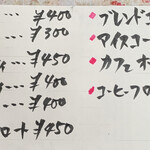 … ¥400
… ¥300
… ¥450
… ¥400
… ¥400
ロート ¥450
ブレンドコ
アイスコー
カフェオ
コーヒーフロ